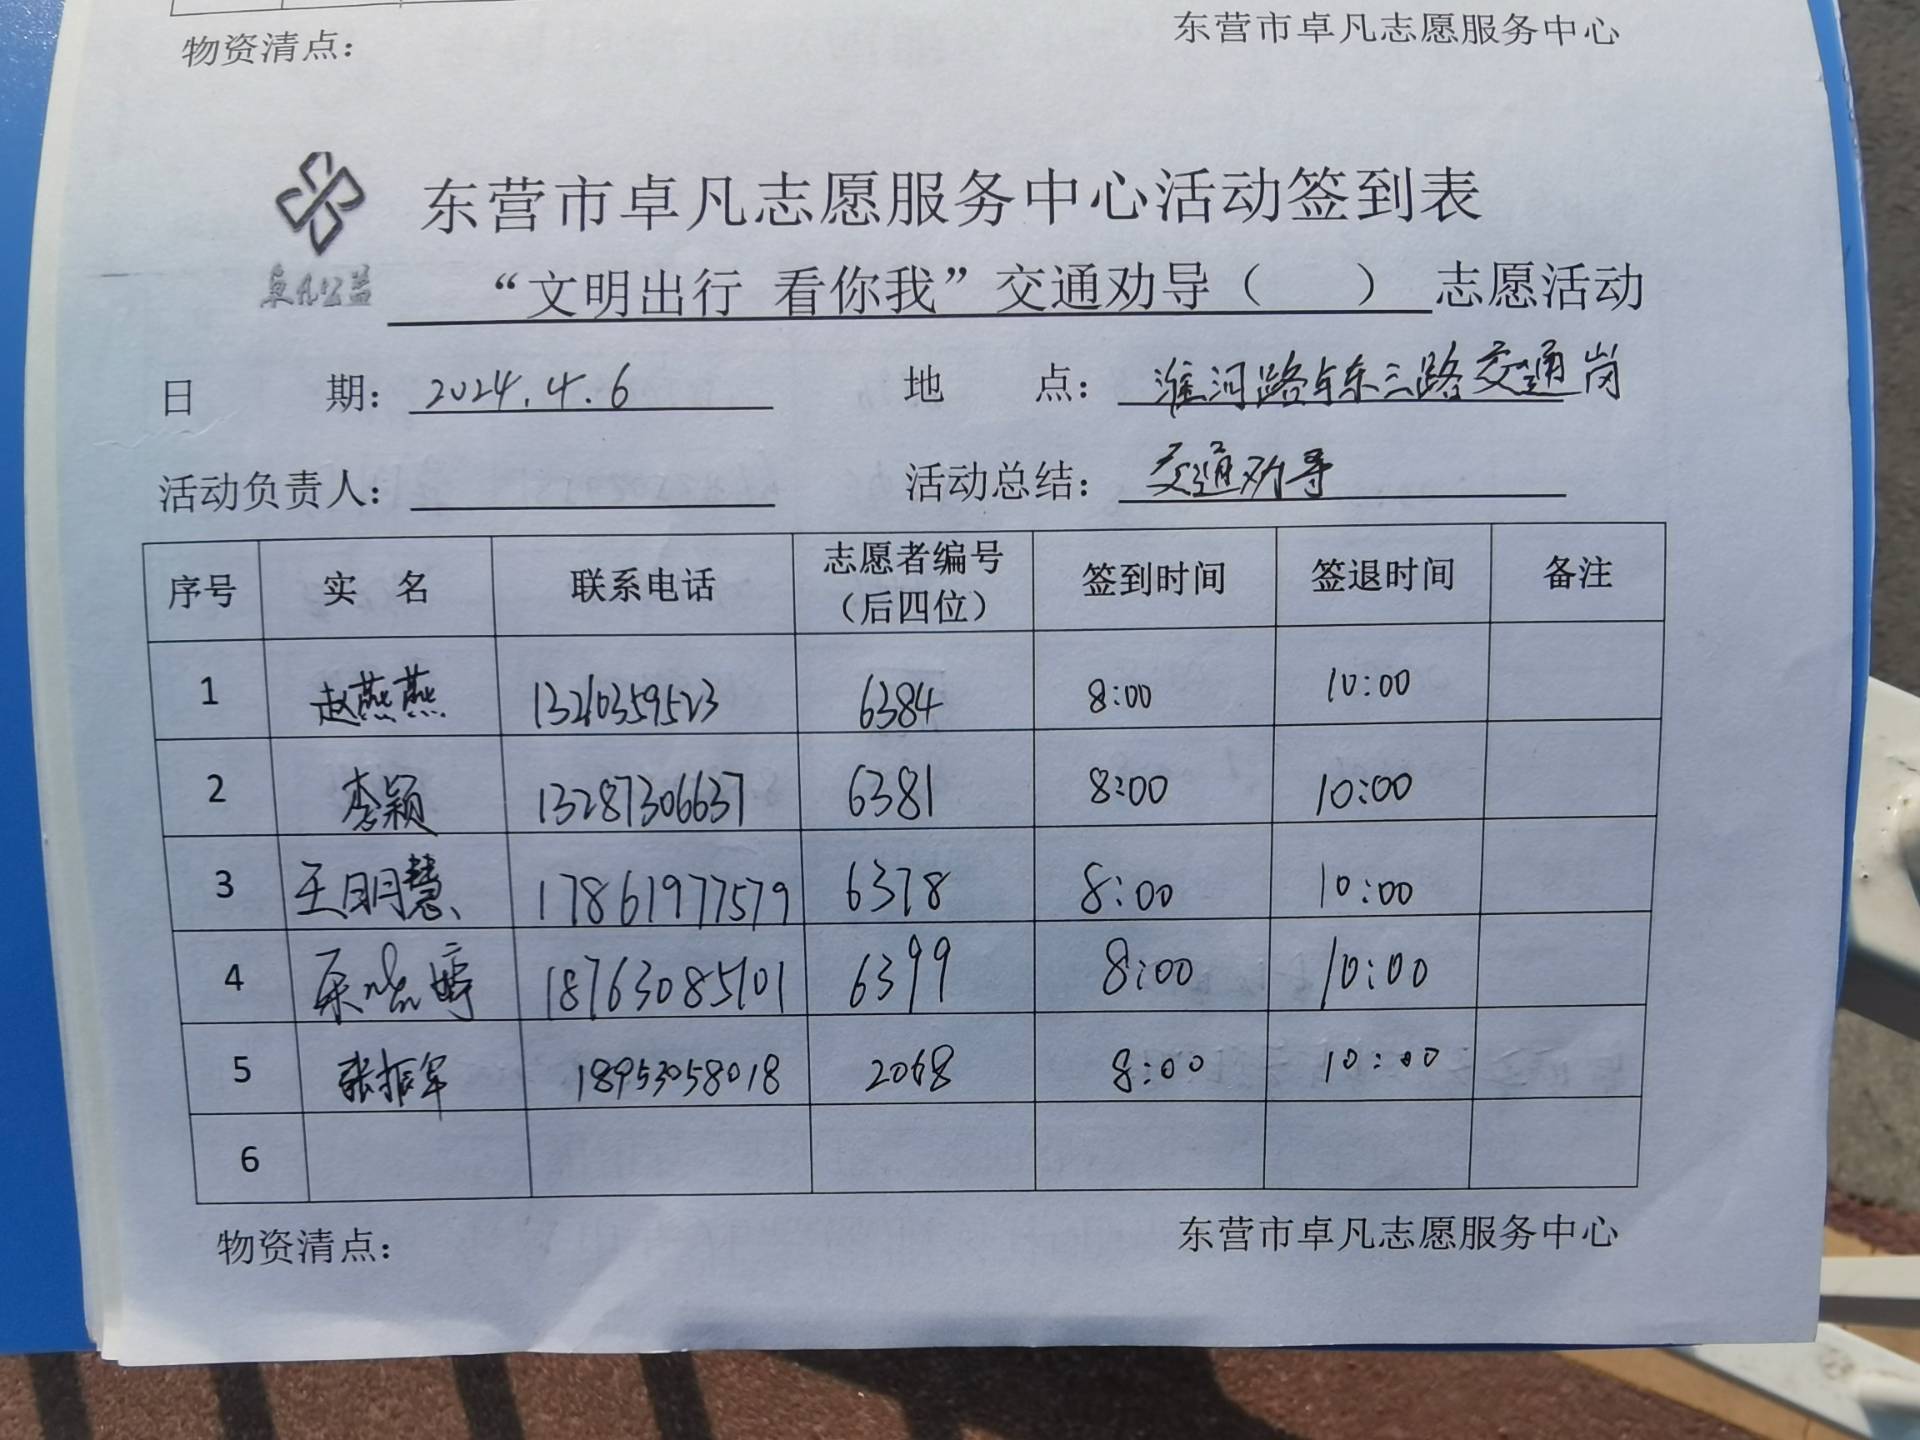 物资清点：
东营市卓凡志愿服务中心
卓凡公益
东营市卓凡志愿服务中心活动签到表
“文明出行 看你我”交通劝导（ ） 志愿活动
日 期： 2024.4.6 地 点： 淮河路与东三路交通岗
活动负责人： 活动总结： 交通劝导
序号 实 名 联系电话 志愿者编号（后四位） 签到时间 签退时间 备注
1 赵燕燕 6384 8:00 10:00
2 李颖 13287306637 6381 8:00 10:00
3 王明慧 17861977579 6378 8:00 10:00
4 18763085101 6399 8:00 10:00
5 张振军 18953058018 2068 8:00 10:00
6
物资清点：
东营市卓凡志愿服务中心